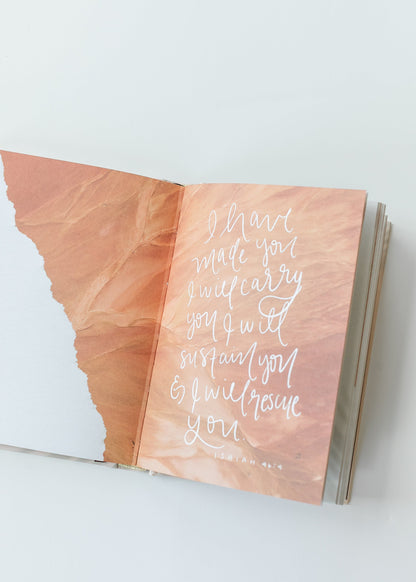 I have
made you
I will carry
you I will
sustain you
& I will rescue
you.
ISAIAH 46:4